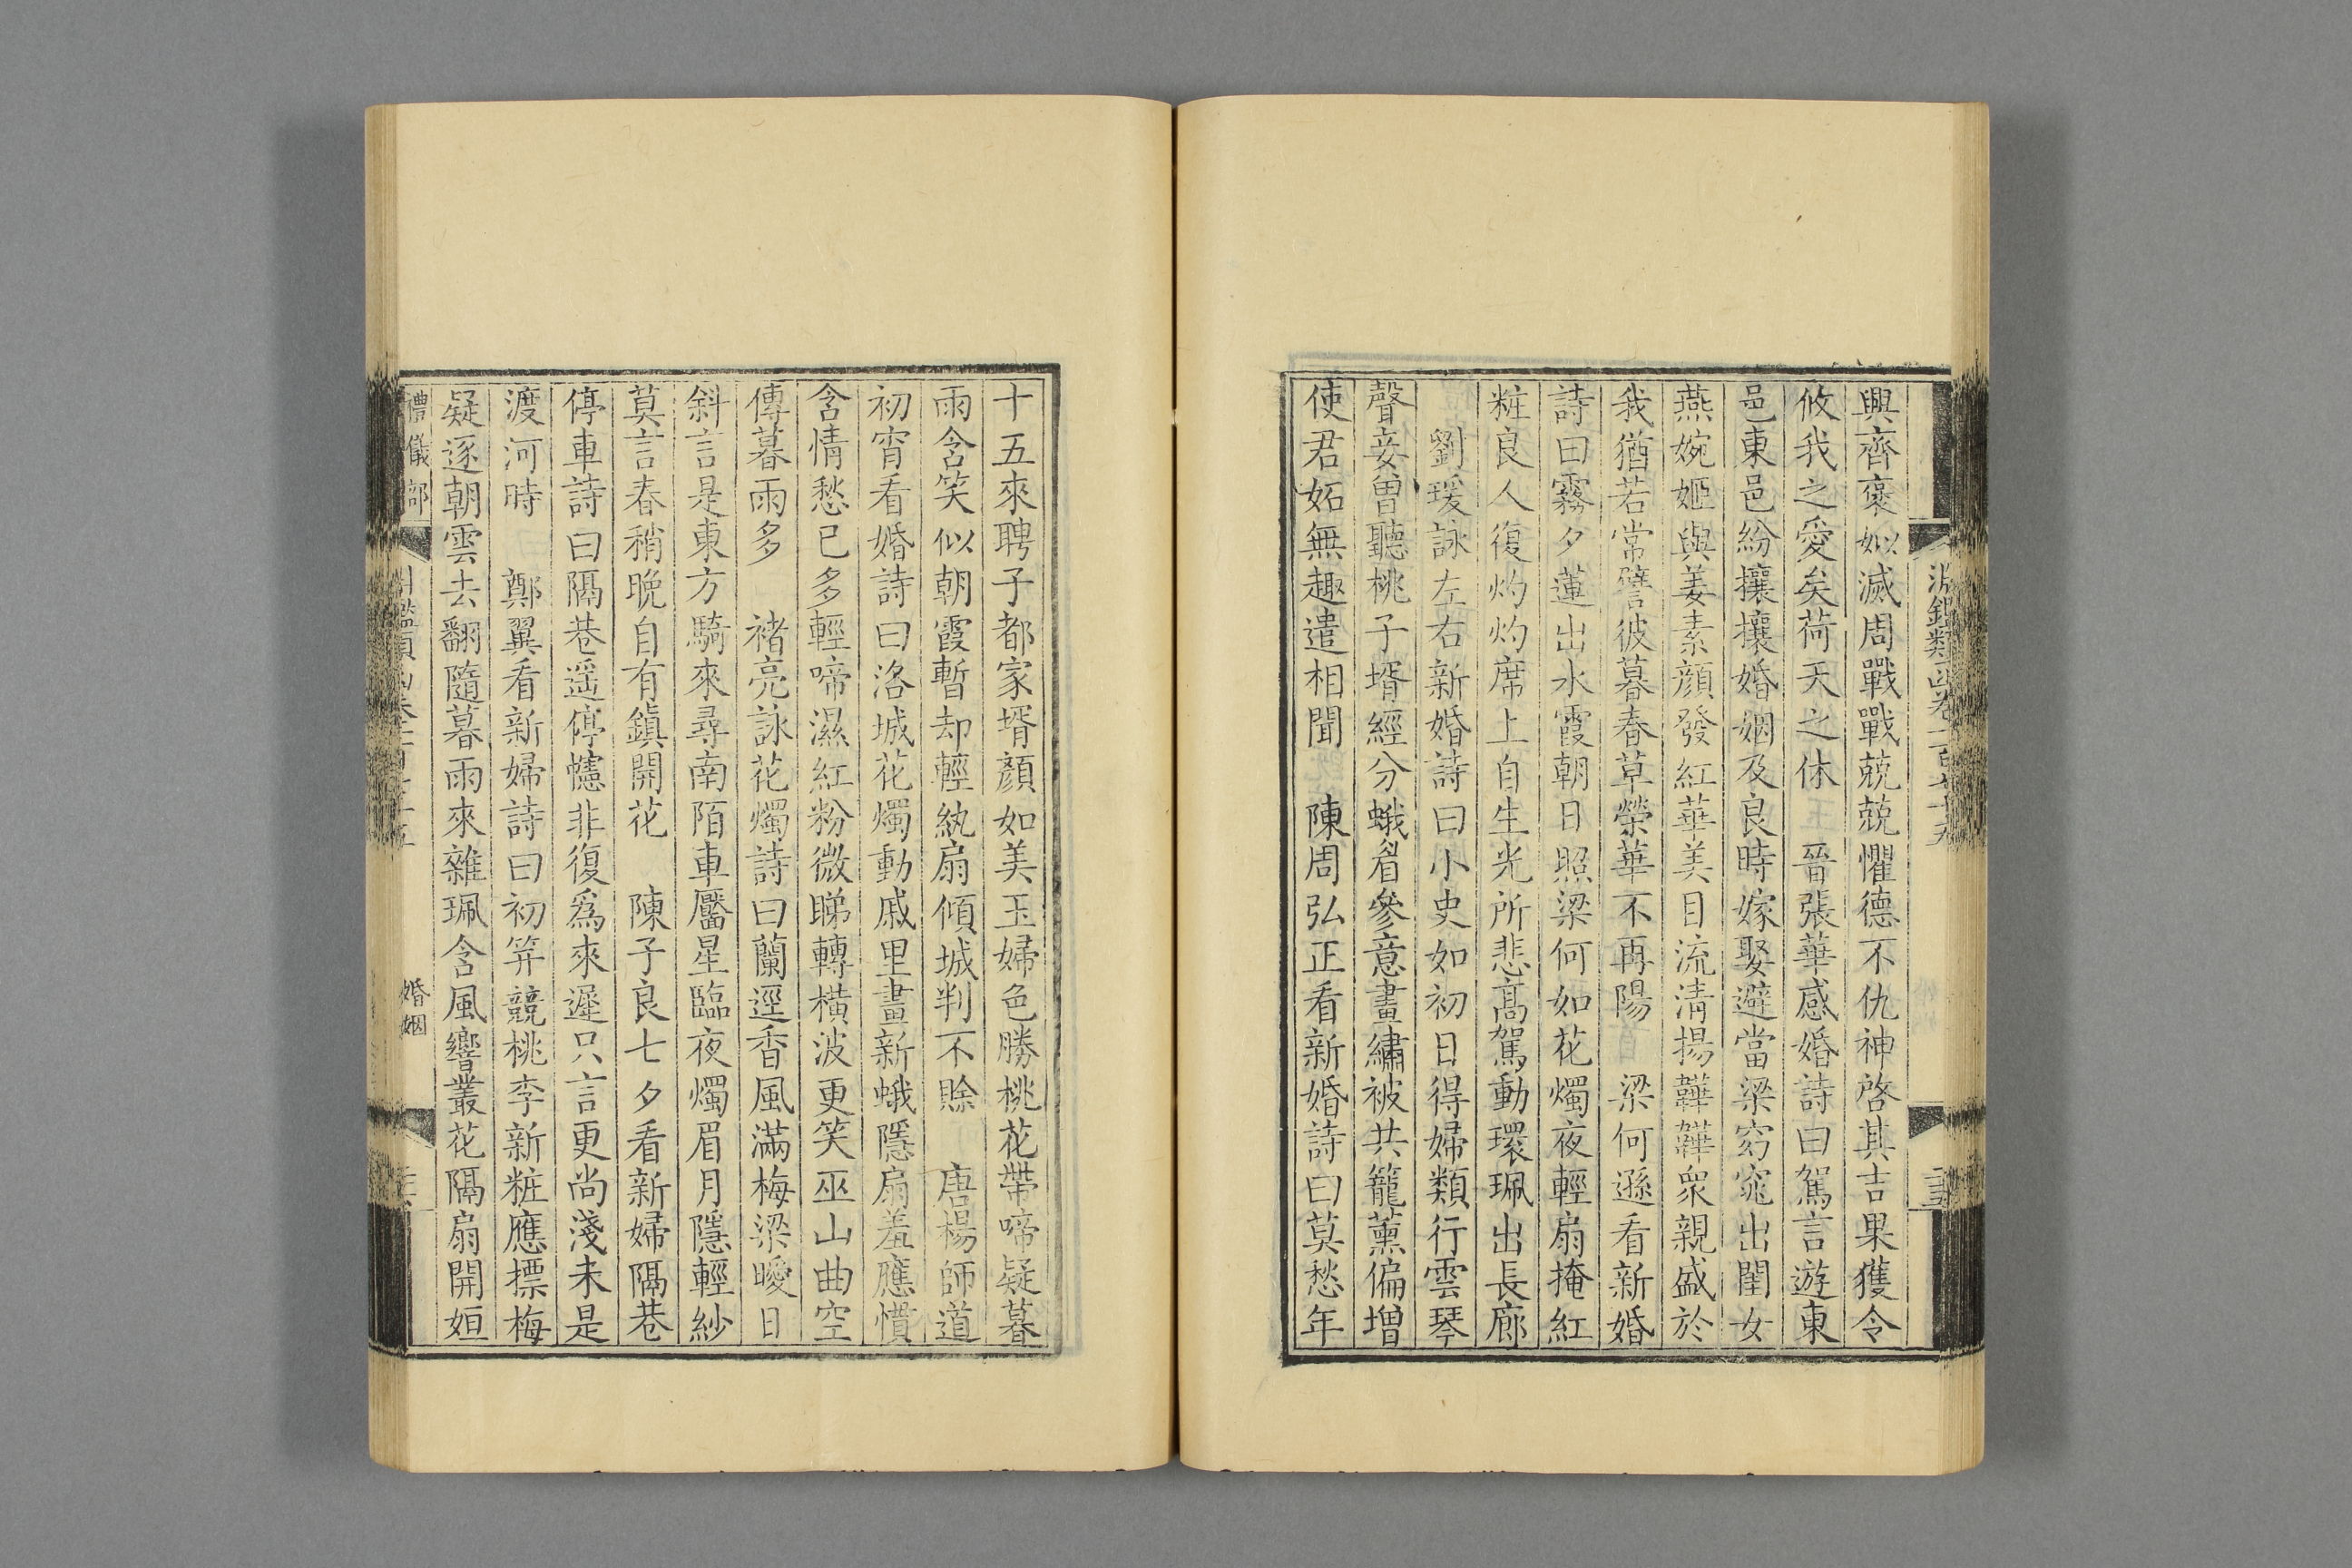 興齊褒姒滅周戰戰兢兢懼德不仇神啓其吉果獲令
攸我之愛矣荷天之休　晉張華感婚詩曰駕言遊東
邑東邑紛攘攘婚姻及良時嫁娶避當梁窈窕出閨女
燕婉姬與姜素顏發紅華美目流淸揚韡韡衆親盛於
我猶若常譬彼暮春草榮華不再陽　梁何遜看新婚
詩曰霧夕蓮出水霞朝日照梁何如花燭夜輕扇掩紅
粧良人復灼灼席上自生光所悲高駕動環珮出長廊
劉瑗詠左右新婚詩曰小史如初日得婦類行雲琴
聲妾曾聽桃子壻經分蛾眉參意畫繡被共籠薰偏增
使君妬無趣遣相聞　陳周弘正看新婚詩曰莫愁年
十五來聘子都家壻顏如美玉婦色勝桃花帶啼疑暮
雨含笑似朝霞暫却輕紈扇傾城判不賖　唐楊師道
初宵看婚詩曰洛城花燭動戚里畫新蛾隱扇羞應慣
含情愁已多輕啼濕紅粉微睇轉橫波更笑巫山曲空
傳暮雨多　褚亮詠花燭詩曰蘭逕香風滿梅梁曖日
斜言是東方騎來尋南陌車靨星臨夜燭眉月隱輕紗
莫言春稍晚自有鎭開花　陳子良七夕看新婦隔巷
停車詩曰隔巷遥停幰非復爲來遲只言更尚淺未是
渡河時　鄭翼看新婦詩曰初笄競桃李新粧應摽梅
疑逐朝雲去翻隨暮雨來雜珮含風響叢花隔扇開姮
禮儀部
婚姻